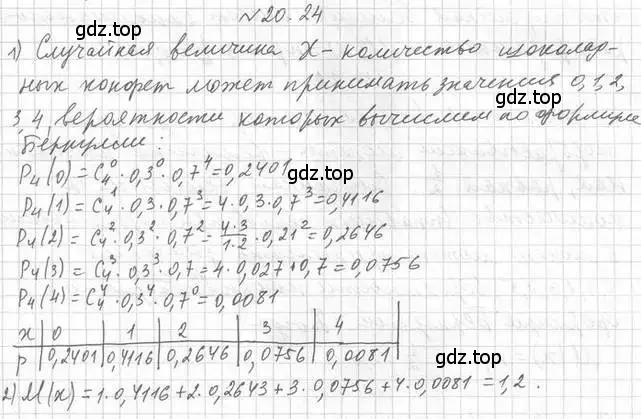 №20.24
1) Случайная величина X - количество шоколад-
ных конфет может принимать значения 0, 1, 2,
3, 4, вероятности которых вычислим по формуле
Бернулли:
P₄(0) = C₄⁰ · 0,3⁰ · 0,7⁴ = 0,2401
P₄(1) = C₄¹ · 0,3 · 0,7³ = 4 · 0,3 · 0,7³ = 0,4116
P₄(2) = C₄² · 0,3² · 0,7² = 4·3/1·2 · 0,21² = 0,2646
P₄(3) = C₄³ · 0,3³ · 0,7 = 4 · 0,027 + 0,7 = 0,0756
P₄(4) = C₄⁴ · 0,3⁴ · 0,7⁰ = 0,0081
x | 0 | 1 | 2 | 3 | 4
P | 0,2401 | 0,4116 | 0,2646 | 0,0756 | 0,0081
2) M(x) = 1 · 0,4116 + 2 · 0,2643 + 3 · 0,0756 + 4 · 0,0081 = 1,2.
gdz.top
gdz.top
gdz.top
gdz.top
gdz.top
gdz.top